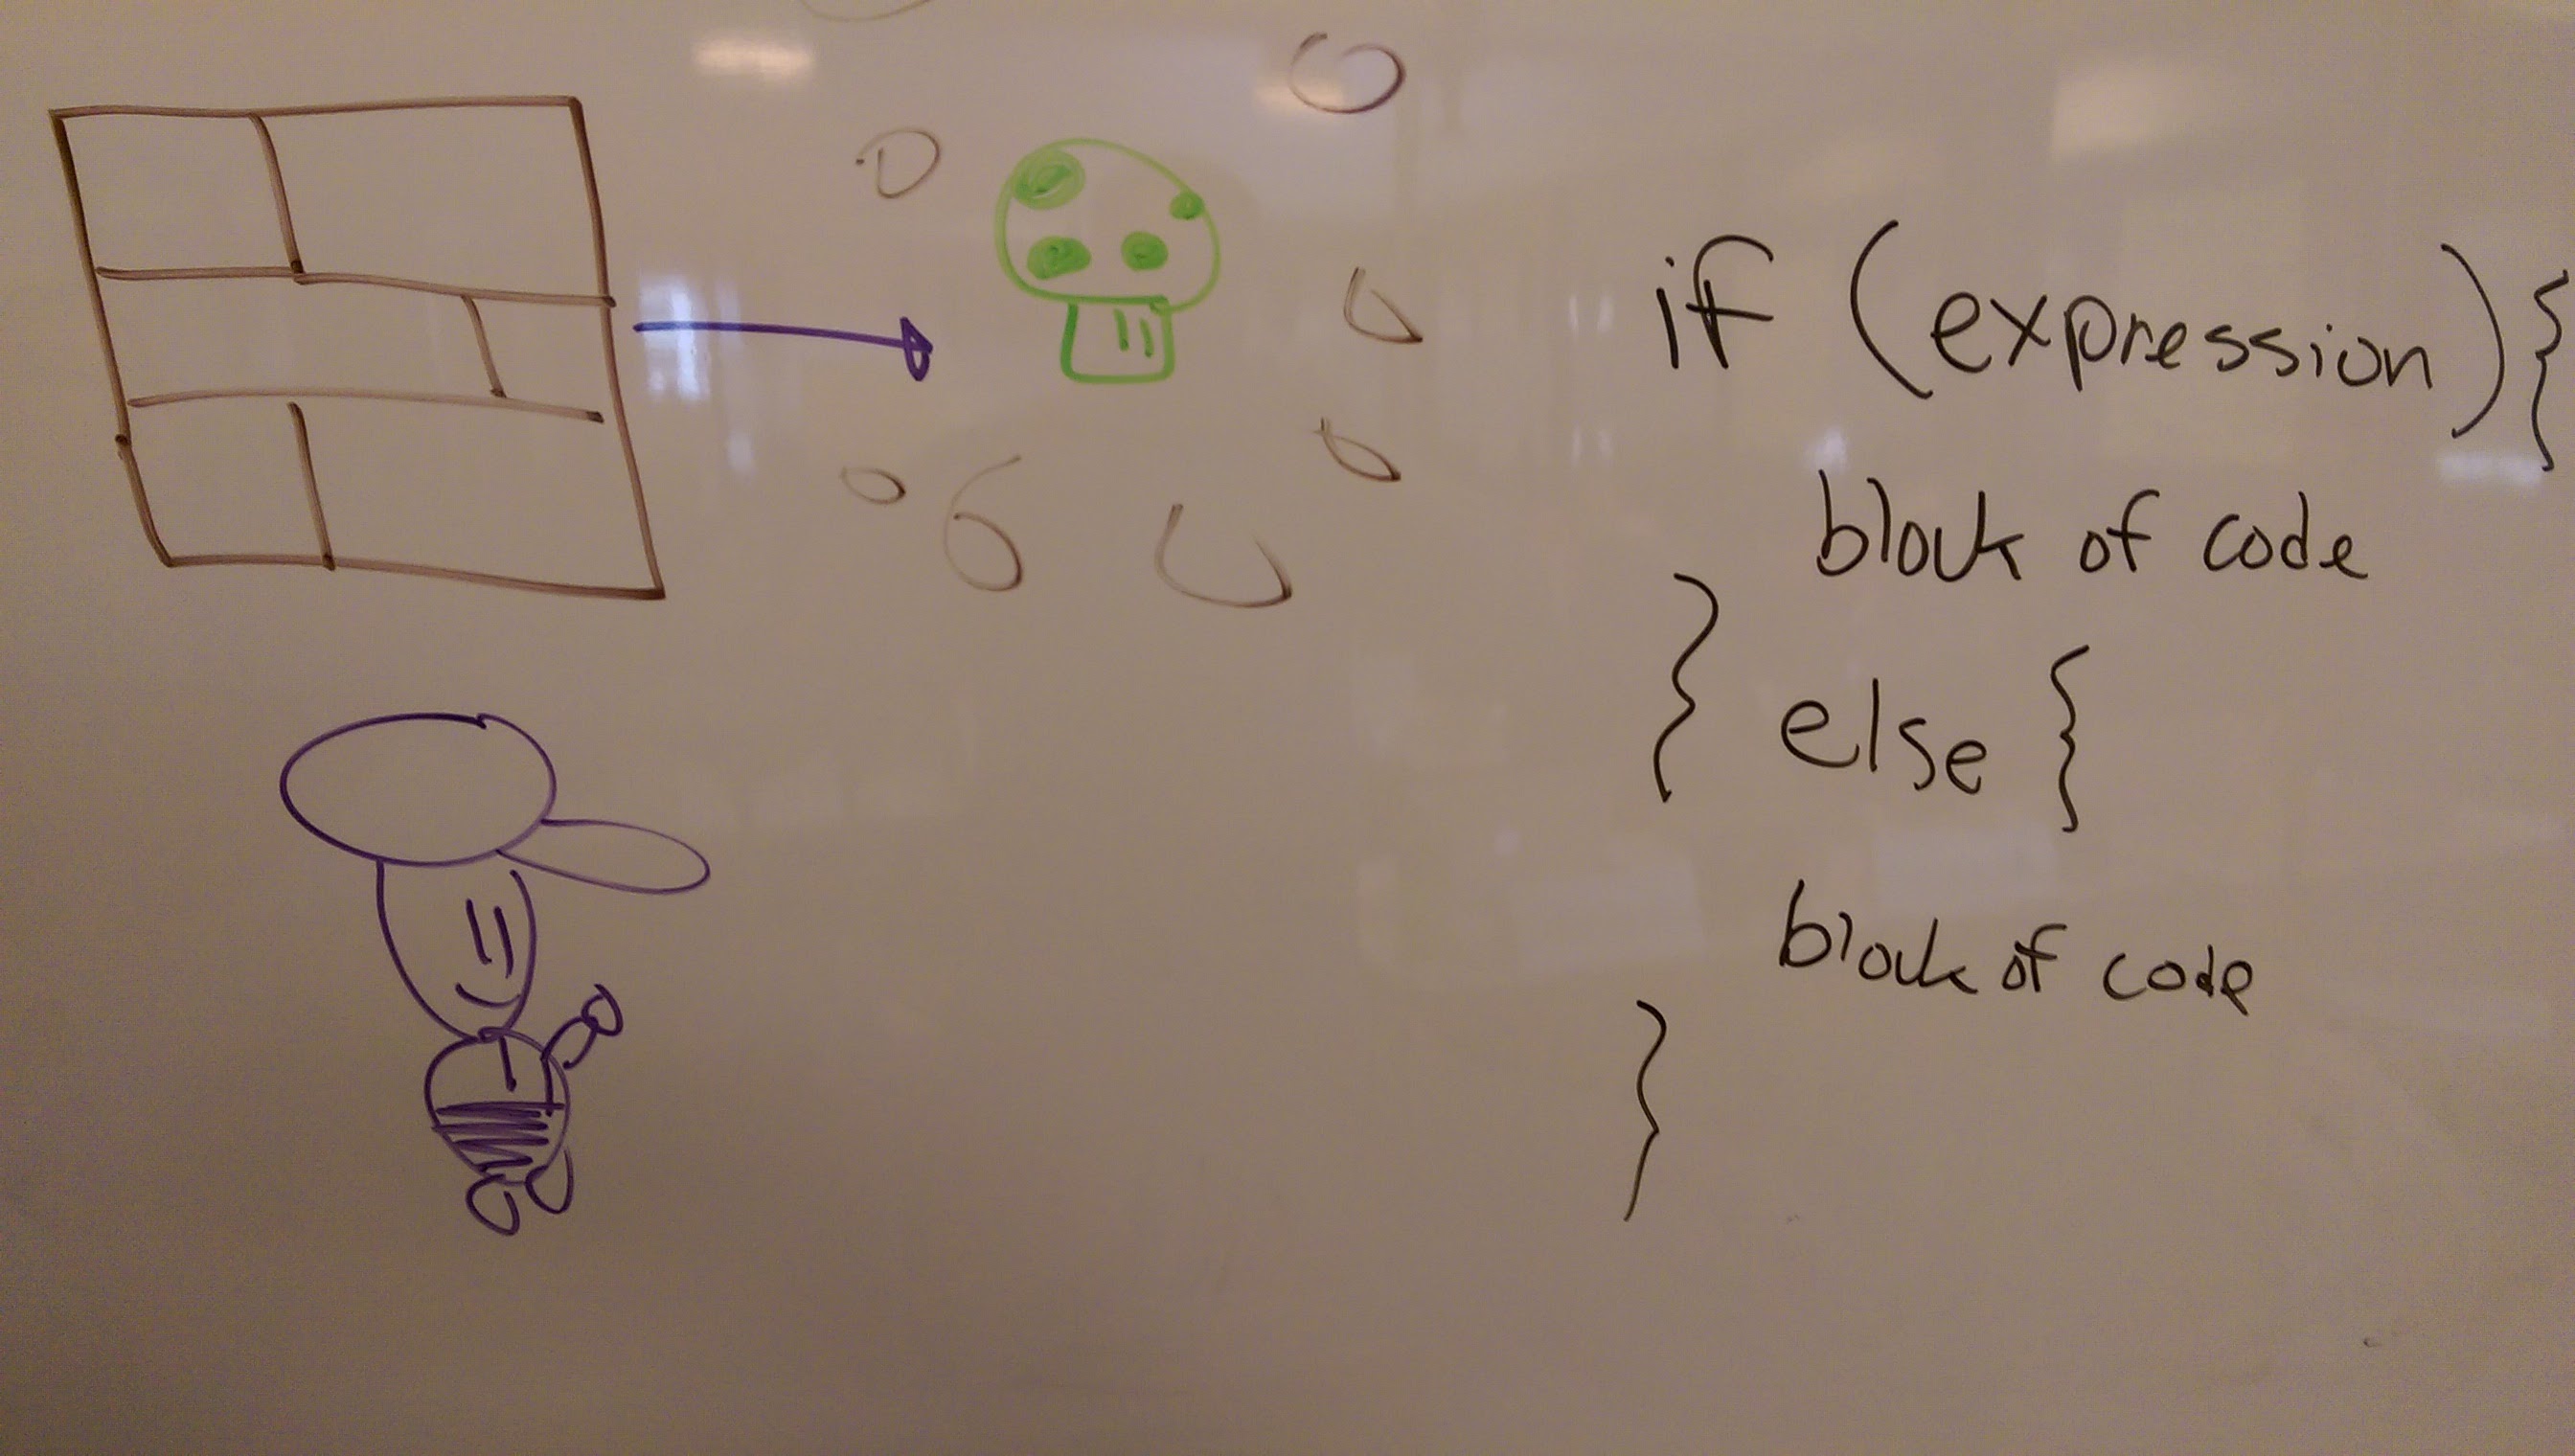 if (expression) {
block of code
} else {
block of code
}